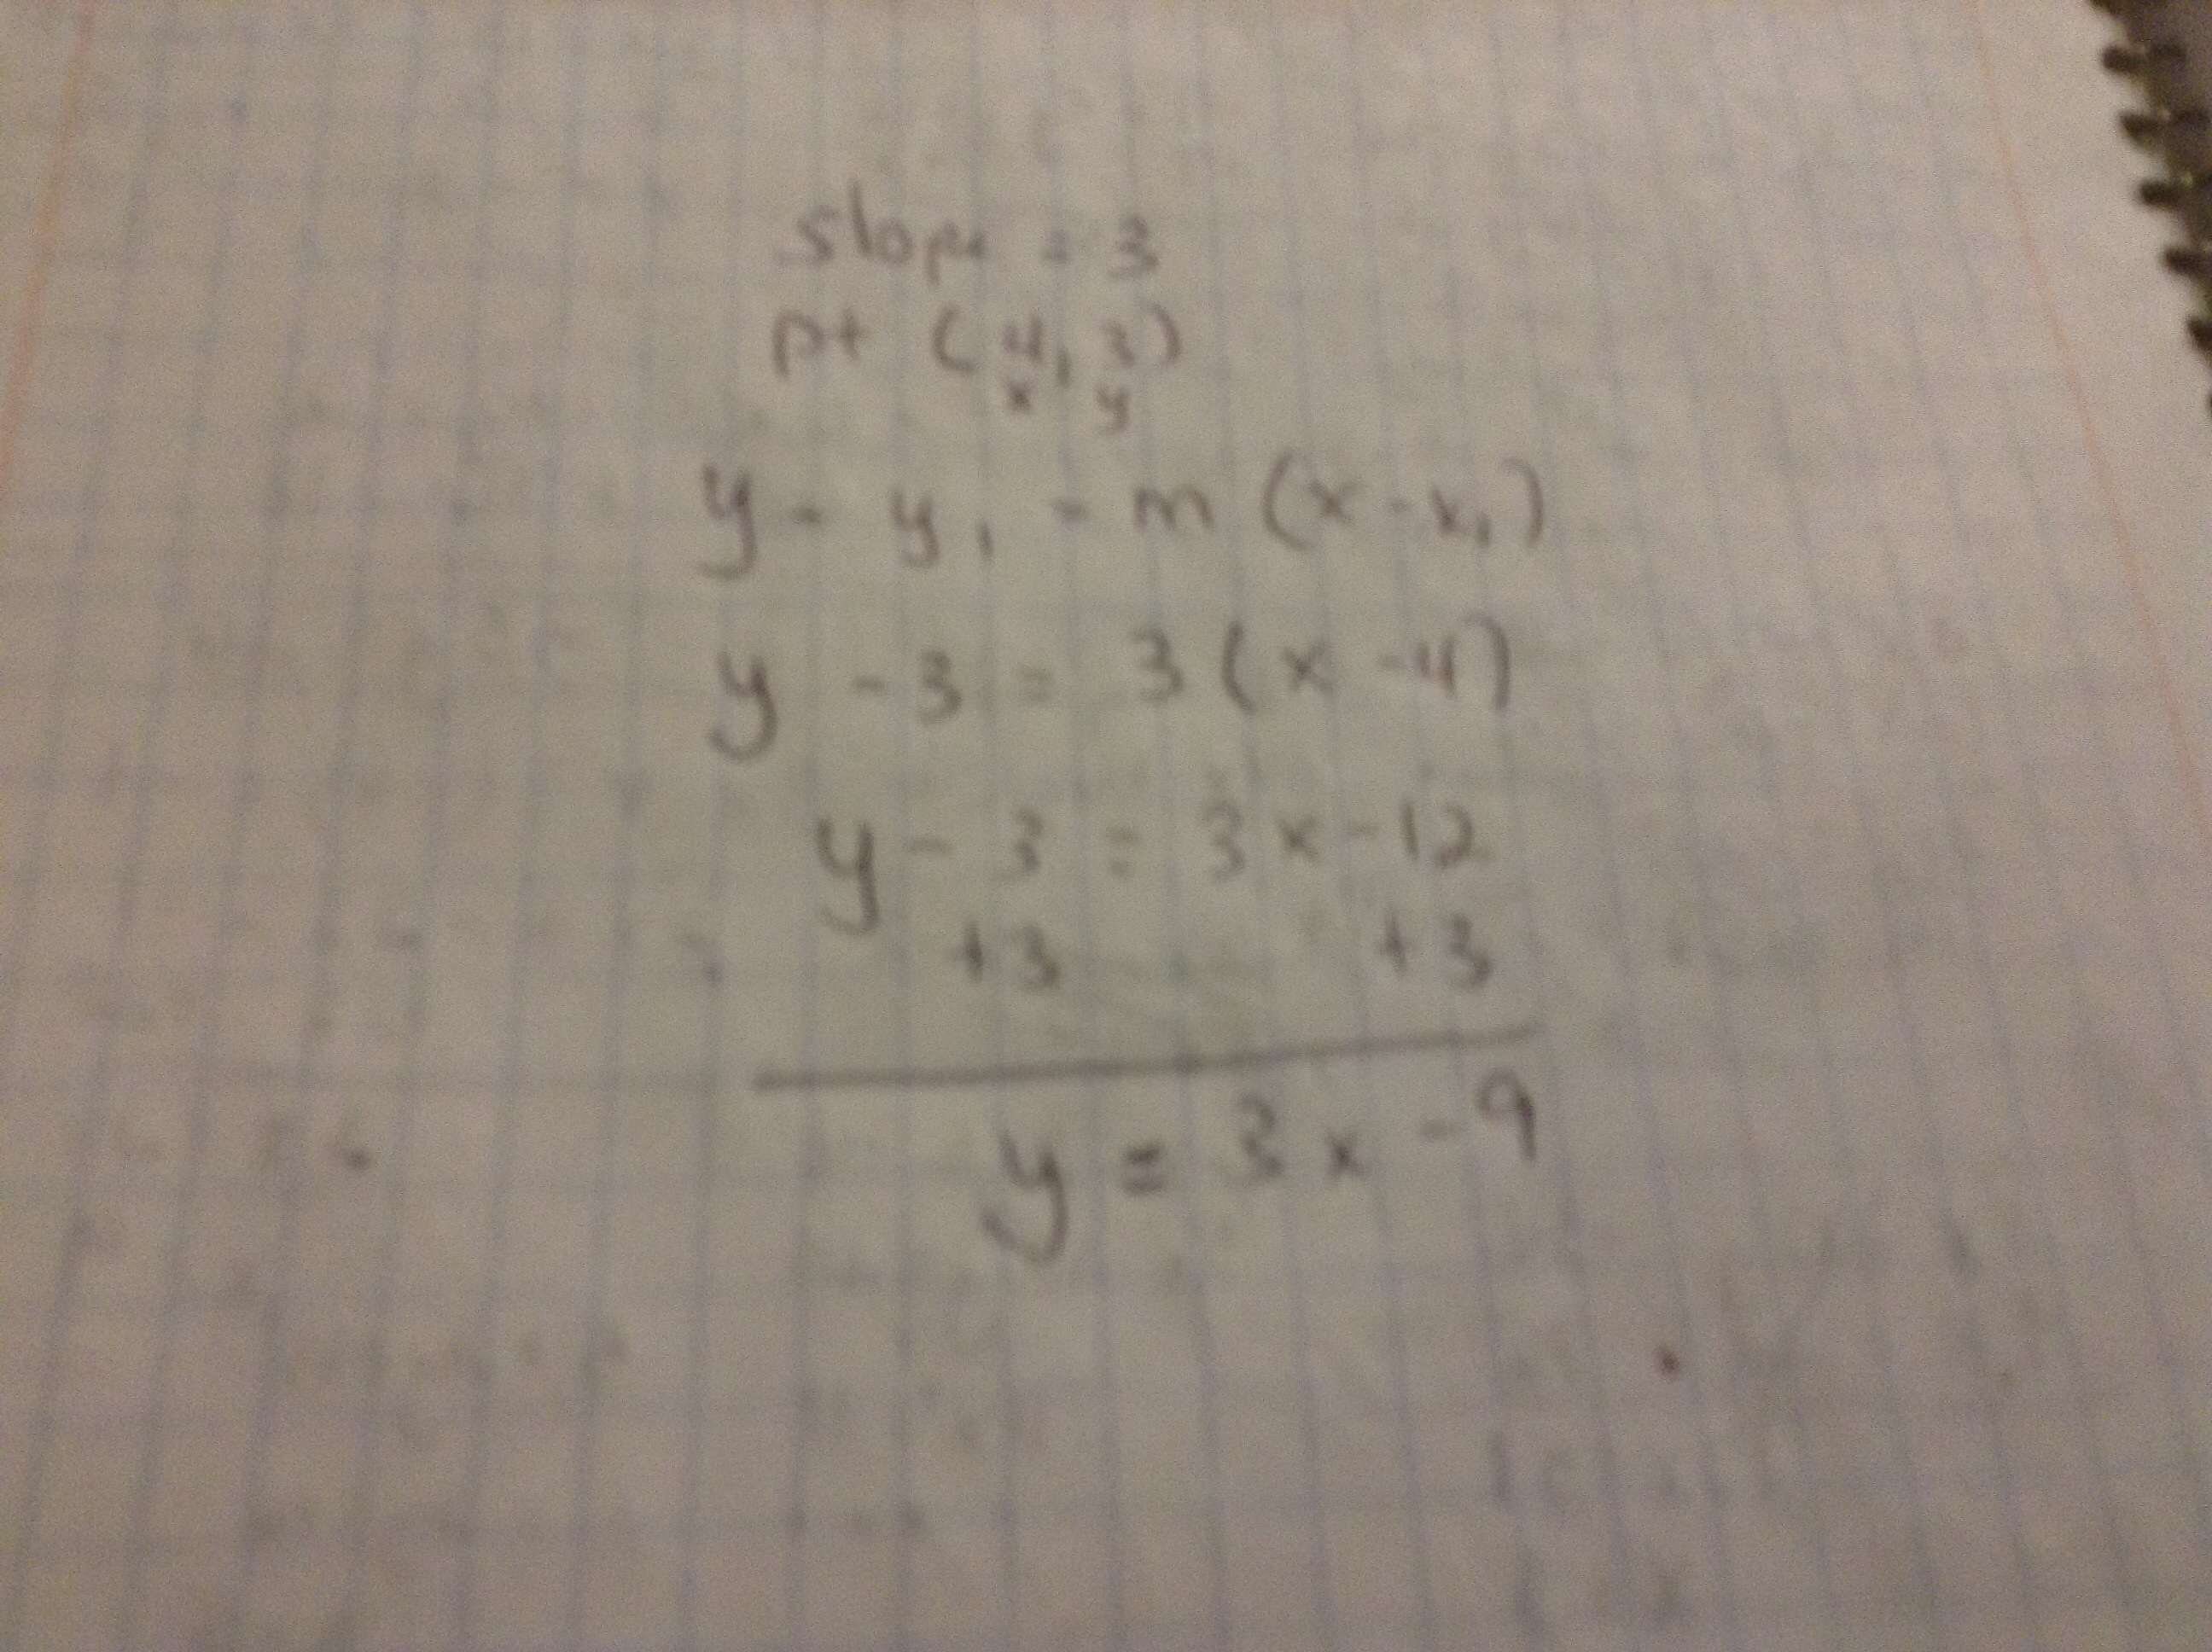 slope = 3
pt (4, 3)
x y
y - y₁ = m (x - x₁)
y - 3 = 3 (x - 4)
y - 3 = 3x - 12
+3 +3
y = 3x - 9